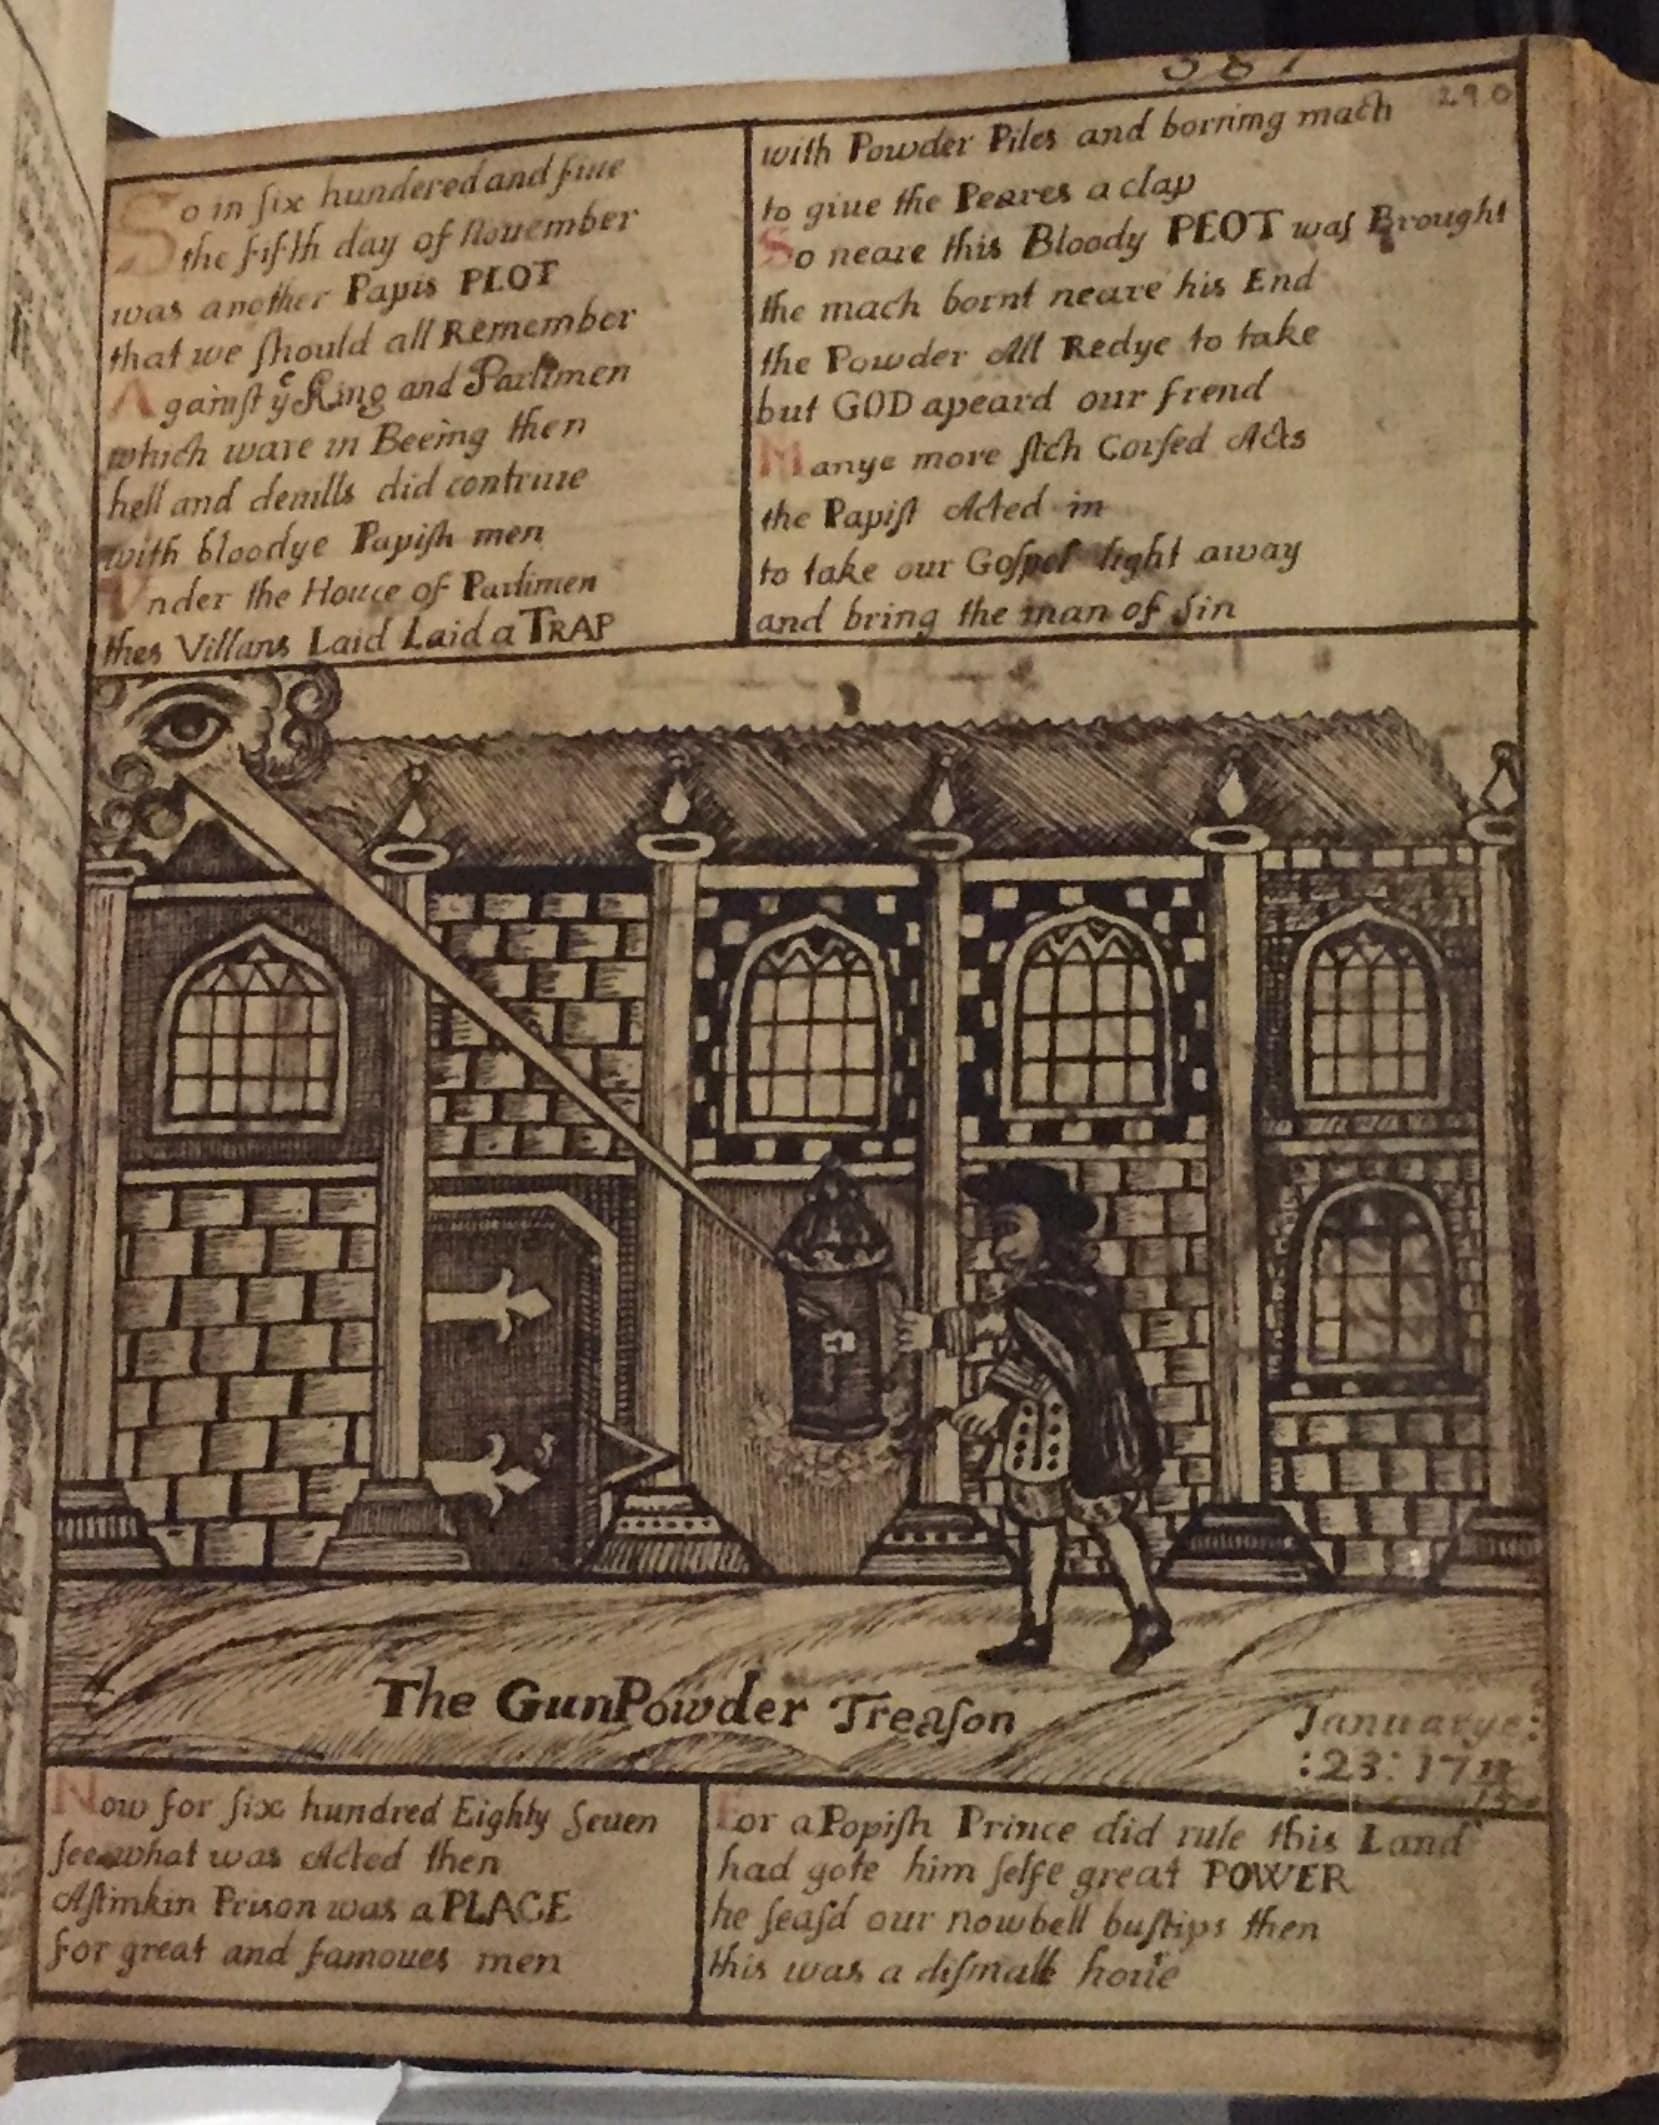 387
290
So in ſix hundered and fiue
the fifth day of Nouember
was another Papis PLOT
that we ſhould all Remember
Againſt yͤ King and Parlimen
which ware in Beeing then
hell and deuills did contriue
with bloodye Papiſh men
Vnder the Houce of Parlimen
thes Villans Laid Laid a TRAP
with Powder Piles and borning mach
to giue the Peares a clap
So neare this Bloody PLOT waſ Brought
the mach bornt neare his End
the Powder All Redye to take
but GOD apeard our frend
Manye more ſich Corſed Acts
the Papiſt Acted in
to take our Goſpel light away
and bring the man of ſin
The GunPowder Treaſon
Januarye:
:23: 17
Now for ſix hundred Eighty Seuen
ſee what was Acted then
Aſtinkin Prison was a PLACE
for great and famoues men
For a Popiſh Prince did rule this Land
had gote him ſelfe great POWER
he ſeaſd our nowbell buſhips then
this was a diſmall houre